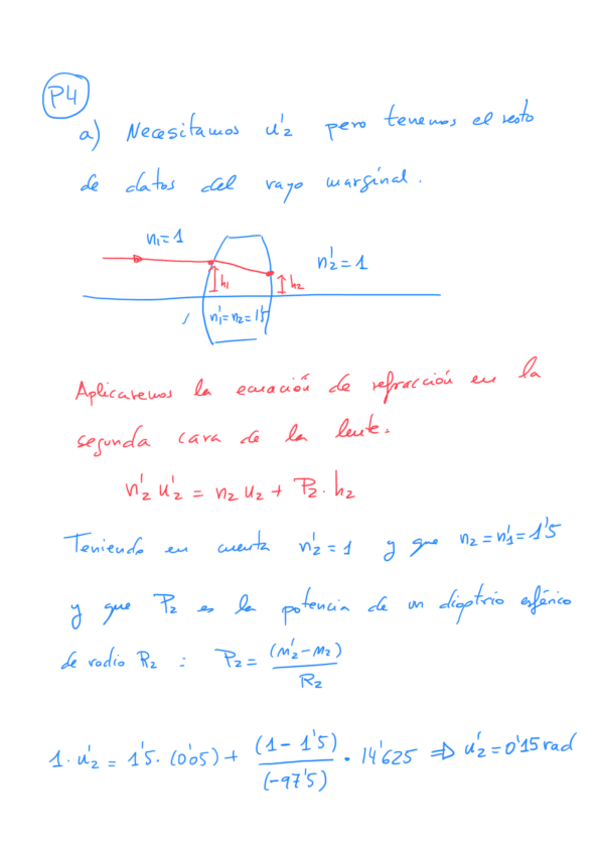 P4
a) Necesitamos u'2 pero tenemos el resto
de datos del rayo marginal.
n1=1
n'2=1
h1
h2
n'1=n2=1'5
Aplicaremos la ecuación de refracción en la
segunda cara de la lente.
n'2 u'2 = n2 u2 + P2 · h2
Teniendo en cuenta n'2=1 y que n2=n'1=1'5
y que P2 es la potencia de un dioptrio esférico
de radio R2 : P2 = (n'2-n2) / R2
1·u'2 = 1'5·(0'05) + (1-1'5) / (-97'5) · 14'625 ⇒ u'2=0'15 rad